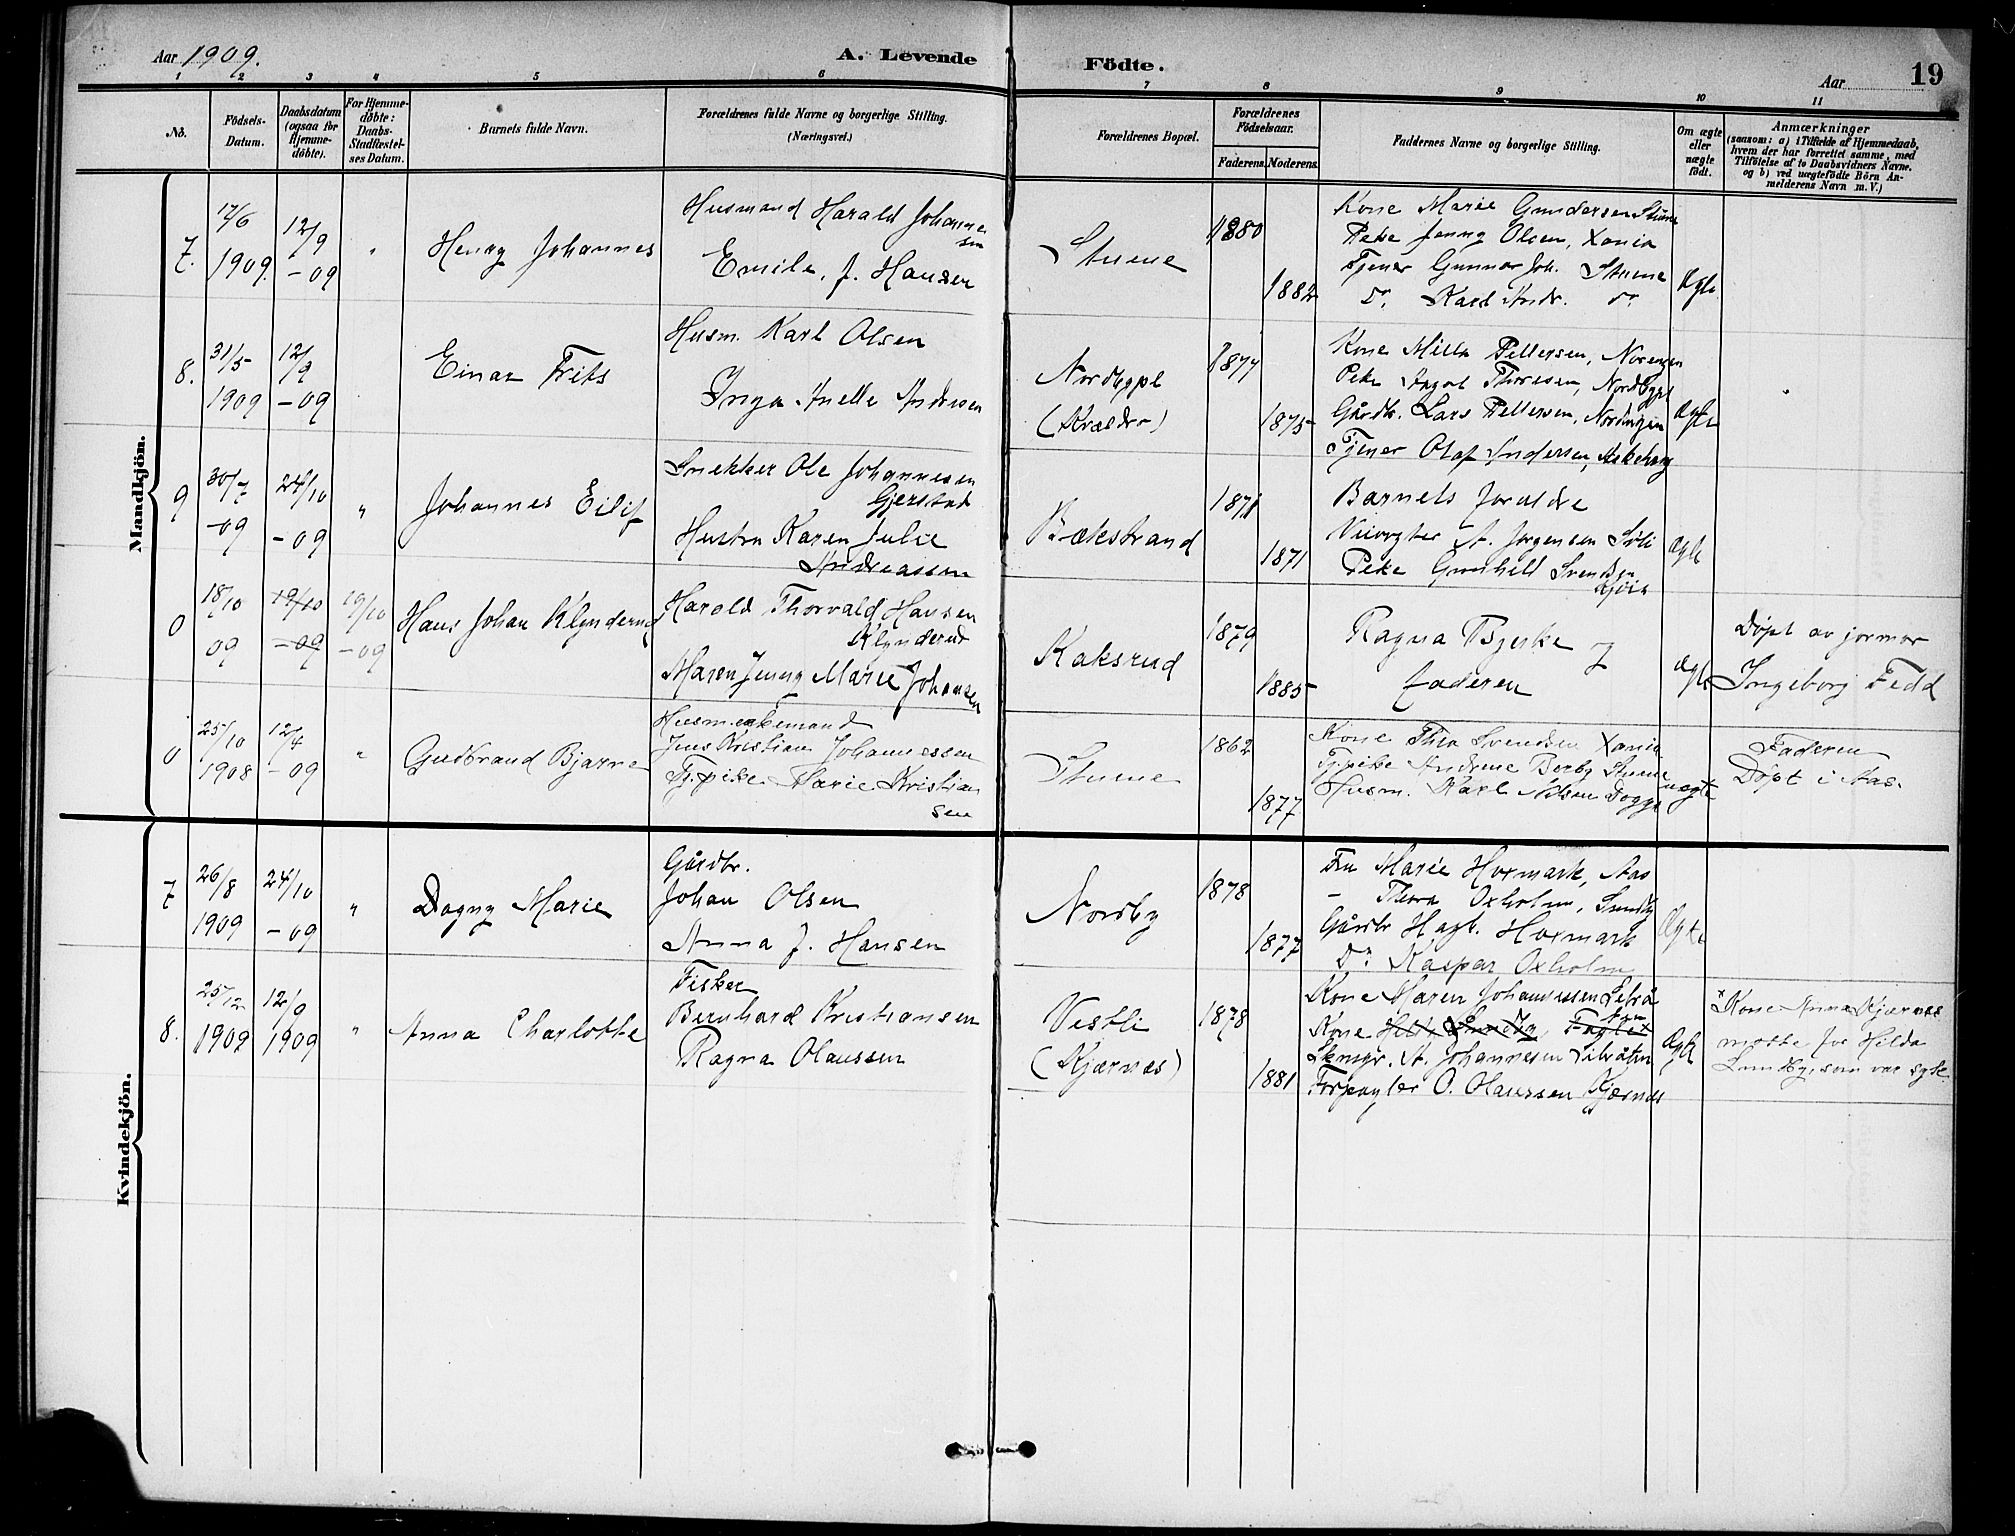 Aar 1909.
A. Levende Födte.
Aar
19
1 2 3 4 5 6 7 8 9 10 11
No.
Födsels-Datum.
Daabsdatum (ogsaa for Hjemme-döbte).
For Hjemme-döbte: Daabs-Stadfæstel-ses Datum.
Barnets fulde Navn.
Forældrenes fulde Navne og borgerlige Stilling.
(Næringsvei.)
Forældrenes Bopæl.
Forældrenes Födselsaar.
Faderens. Moderens.
Faddernes Navne og borgerlige Stilling.
Om ægte eller uægte födt.
Anmærkninger
(saasom: a) i Tilfælde af Hjemmedaab,
hvem der har forrettet samme, med
Tilföielse af to Daabsvidners Navne.
og b) ved uægtefödte Börn An-
melderens Navn m. V.)
Mandkjön.
7.
17/6
1909.
12/9
-09
"
Henry Johannes
Husmand Harald Johanne
sen
Emilie. J. Hansen
Stuene
1880
1882
Kone Marie Gundersen Stuene
Pike Jenny Olsen, Xania
Tjener Gunnar Joh. Stuene
Do. Karl Andr. do
Ægte
8.
31/5
1909
12/9
-09
Einar Frits
Husm. Karl Olsen
Inga Anette Andresen
Nordbypl
(Kræddo)
1877
1875
Kone Milla Pettersen, Norengen
Pike Thoresen, Nordbypl
Gårdbr. Lars Pettersen, Nordengen
Tjener Olaf Andersen, Askehaug
Ægte
9
30/7
-09
24/10
-09
"
Johannes Eilif
Snekker Ole Johannesen
Gjerstad
Hustru Karen Julie
Andreassen
Bækstrand
1871
1871
Barnets foreldre
A. Jørgensen Søli
Pike Gunhild Svendsen
Ægte
0
18/10
09
19/10
-09
19/10
-09
Hans Johan Klynderud
Harald Thorvald Hansen
Klynderud
Maren Jenny Marie Johansen
Kaksrud
1879
1885
Ragna Bjerke
faderen
ægte
Døpt av jormor
Ingeborg Fedd
0
25/10
1908
12/4
-09
"
Gudbrand Bjarne
Husm. enkemand
Jens Kristian Johannessen
Tj. pike Marie Kristian
sen
Stuene
1862
1877
Kone Thea Svendsen Xania
Tj. pike Andrine Berby Stuene
Husm. Karl Nilsen Dogge
uægte
Faderen
Døpt i Aas.
Kvindekjön.
7
26/8
1909
24/10
-09
"
Dagny Marie
Gårdbr.
Johan Olsen
Anna J. Hansen
Nordby
1878
1877
Fru Marie Hoxmark, Aas
– Thora Oxholm, Sundby
Gårdbr Hagb. Hoxmark
Do Kaspar Oxholm
Ægte
8.
25/12
1909
12/9
1909
"
Anna Charlotte
Fisker
Bernhard Kristiansen
Ragna Olaussen
Vestli
(Kjærnæs)
1878
1881
Kone Maren Johannessen Letrå
Kone Hilda Lundby, Faglet
A. Johannesen
Forpagter O. Olaussen Kjærnæs
Ægte
x Kone Anna Kjærnæs
møtte for Hilda
Lundby, som var syk